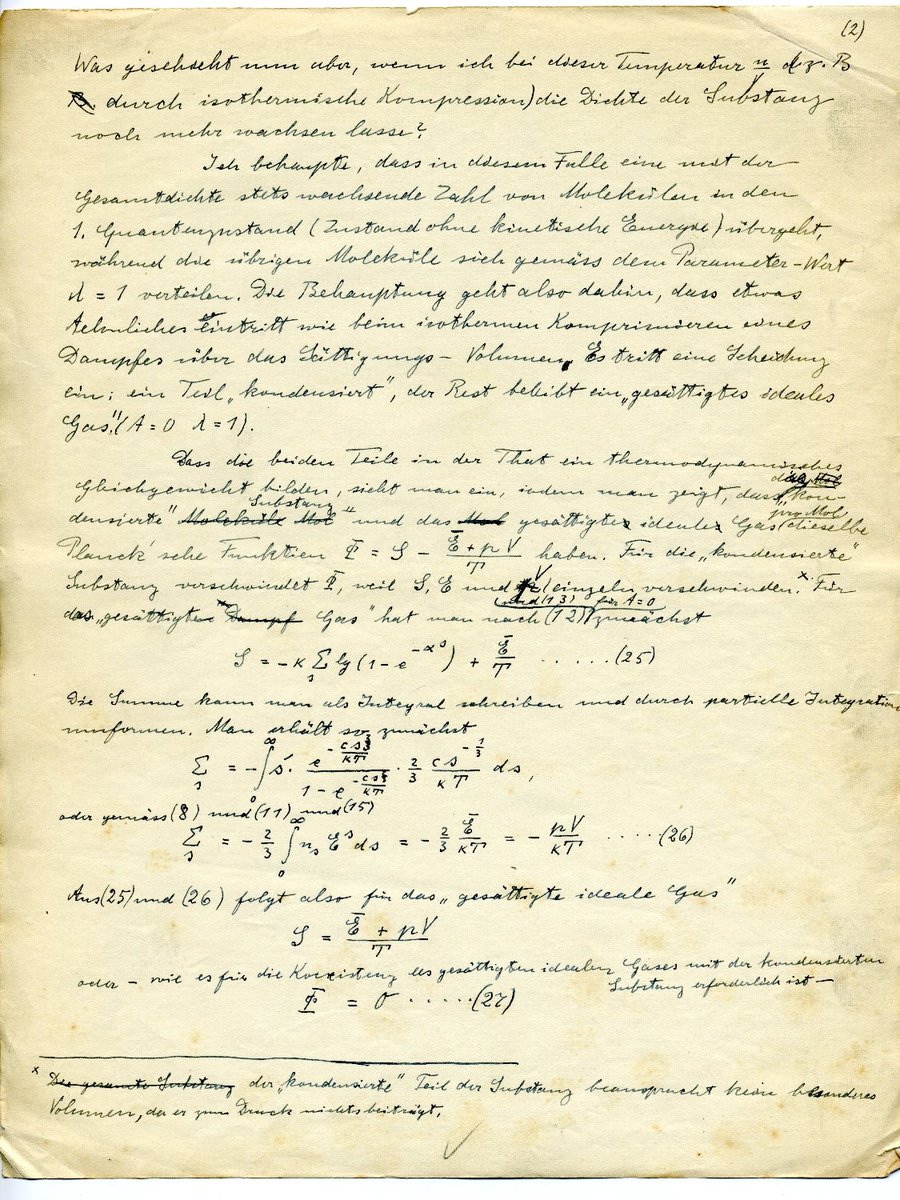 (2)
Was geschieht nun aber, wenn ich bei dieser Temperatur (z. B
durch isothermische Kompression) die Dichte der Substanz
noch mehr wachsen lasse?
Ich behaupte, dass in diesem Falle eine mit der
Gesamtdichte stets wachsende Zahl von Molekülen in den
1. Quantenzustand (Zustand ohne kinetische Energie) übergeht,
während die übrigen Moleküle sich gemäss dem Parameter-Wert
λ = 1 verteilen. Die Behauptung geht also dahin, dass etwas
Aehnliches eintritt wie beim isothermen Komprimieren eines
Dampfes über das Sättigungs-Volumen. Es tritt eine Scheidung
ein; ein Teil „kondensiert“, der Rest bleibt ein „gesättigtes ideales
Gas“. (A = 0 λ = 1).
Dass die beiden Teile in der That ein thermodynamisches
Gleichgewicht bilden, sieht man ein, indem man zeigt, dass die „kon-
densierte“ Substanz und das gesättigte ideale Gas pro Mol dieselbe
Planck'sche Funktion Φ = S − (Ē + pV)/T haben. Für die „kondensierte“
Substanz verschwindet Φ, weil S, E und V einzeln verschwinden.ˣ Für
das „gesättigte Gas“ hat man nach (12) und (13) für A = 0 zunächst
S = −κ Σₛ lg(1 − e^(−αˢ)) + Ē/T ...... (25)
Die Summe kann man als Integral schreiben und durch partielle Integration
umformen. Man erhält so zunächst
Σₛ = −∫₀^∞ s · e^(−cs^(2/3)/κT) / (1 − e^(−cs^(2/3)/κT)) · 2/3 · cs^(−1/3)/κT ds,
oder gemäss (8) und (11) und (15)
Σₛ = −2/3 ∫₀^∞ nₛ Eˢ ds = −2/3 Ē/κT = − pV/κT ..... (26)
Aus (25) und (26) folgt also für das „gesättigte ideale Gas“
S = (Ē + pV)/T
oder – wie es für die Koexistenz des gesättigten idealen Gases mit der kondensierten
Substanz erforderlich ist –
Φ = 0 ...... (27)
x Die gesamte Substanz der „kondensierte“ Teil der Substanz beansprucht kein besonderes
Volumen, da er zum Druck nichts beiträgt.